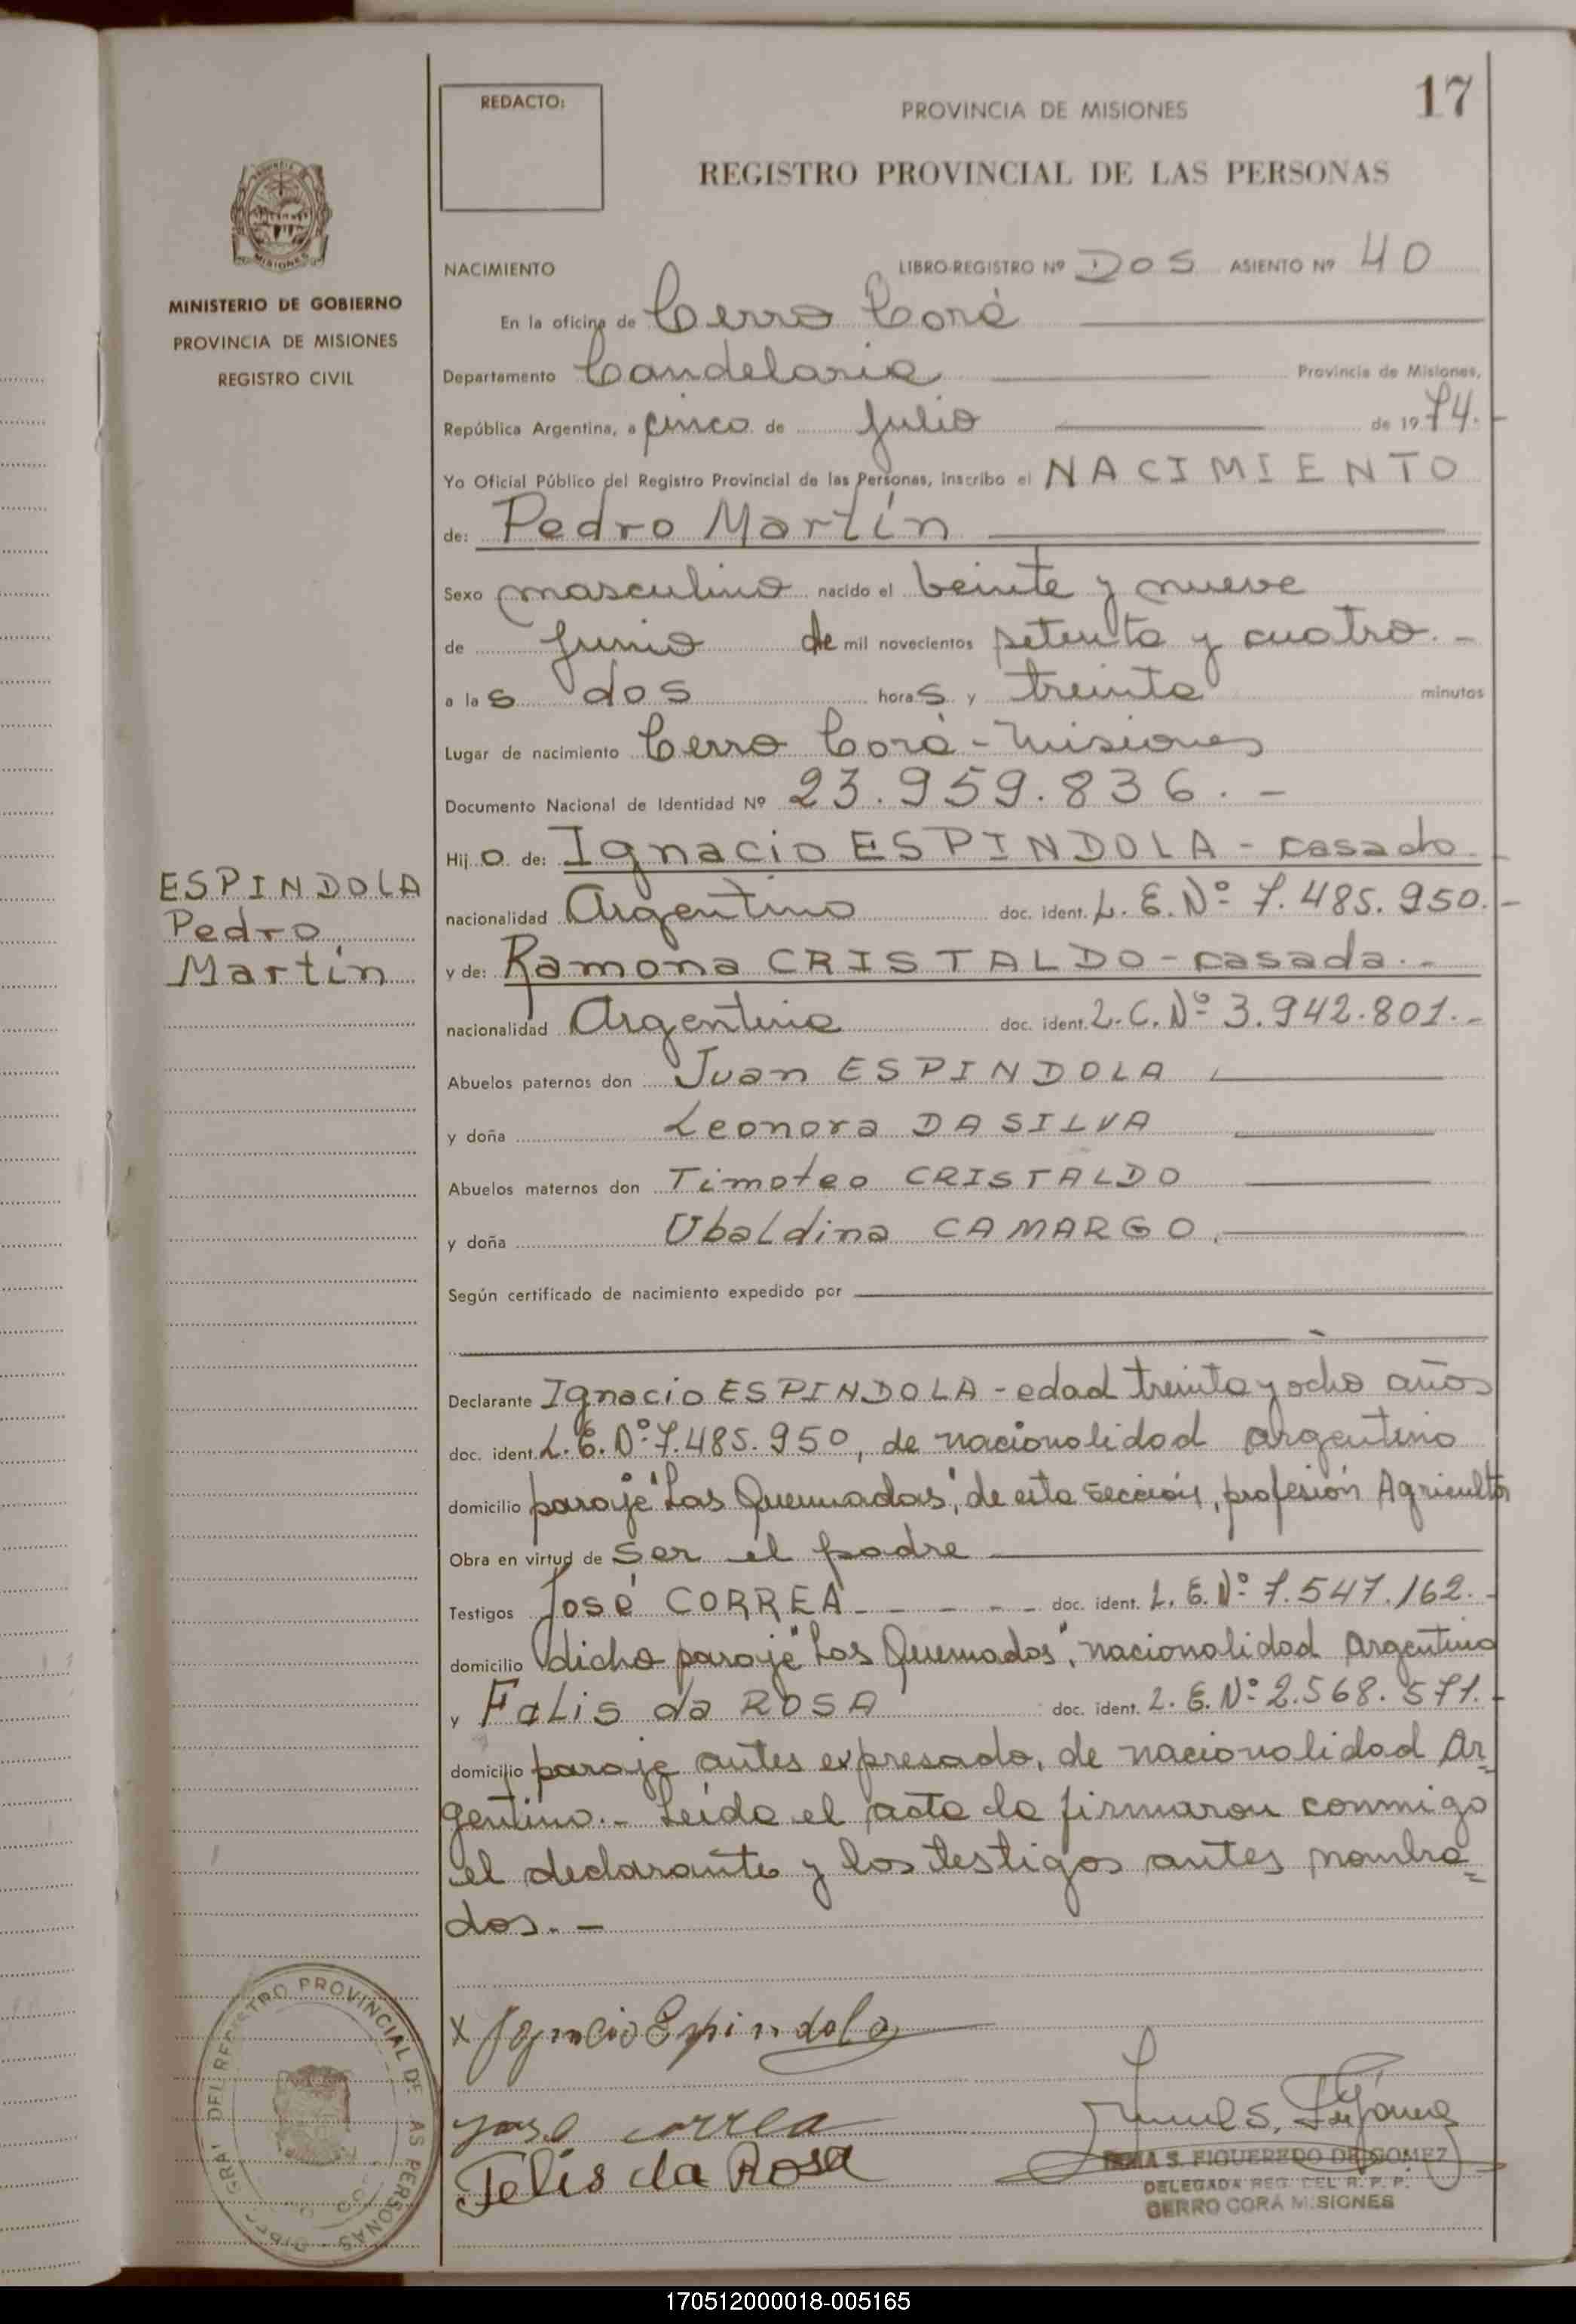 17
REDACTO:
PROVINCIA DE MISIONES
REGISTRO PROVINCIAL DE LAS PERSONAS
MISIONES
MINISTERIO DE GOBIERNO
PROVINCIA DE MISIONES
REGISTRO CIVIL
NACIMIENTO LIBRO-REGISTRO Nº DOS ASIENTO Nº 40
En la oficina de Cerro Corá
Departamento Candelaria Provincia de Misiones,
República Argentina, a cinco de Julio de 1974.-
Yo Oficial Público del Registro Provincial de las Personas, inscribo el NACIMIENTO
de: Pedro Martín
Sexo masculino nacido el beinte y nueve
de Junio de mil novecientos setenta y cuatro.-
a las dos horas y treinta minutos
Lugar de nacimiento Cerro Corá - Misiones
Documento Nacional de Identidad Nº 23.959.836.-
Hijo de: Ignacio ESPINDOLA - casado.-
nacionalidad Argentino doc. ident. L.E.Nº 7.485.950.-
y de: Ramona CRISTALDO - casada.-
nacionalidad Argentina doc. ident. L.C.Nº 3.942.801.-
ESPINDOLA
Pedro
Martín
Abuelos paternos don Juan ESPINDOLA
y doña Leonora DA SILVA
Abuelos maternos don Timoteo CRISTALDO
y doña Ubaldina CAMARGO.
Según certificado de nacimiento expedido por
Declarante Ignacio ESPINDOLA - edad treinta y ocho años
doc. ident. L.E.Nº 7.485.950, de nacionalidad argentino
domicilio paraje "Las Quemadas", de esta sección, profesión Agricultor
Obra en virtud de ser el padre
Testigos José CORREA - - - - - doc. ident. L.E.Nº 7.547.162.-
domicilio dicho paraje "Las Quemadas", nacionalidad Argentino
y Felis da ROSA doc. ident. L.E.Nº 2.568.571.-
domicilio paraje antes expresado, de nacionalidad Ar=
gentino.- Leída el acta la firmaron conmigo
el declarante y los testigos antes nombra=
dos.-
x Ignacio Espindola
Jose Correa
Felis da Rosa
S. FIGUEREDO DE GOMEZ
DELEGADA REG. DEL R. P. P.
CERRO CORA MISIONES
DEL REGISTRO PROVINCIAL DE LAS PERSONAS
170512000018-005165